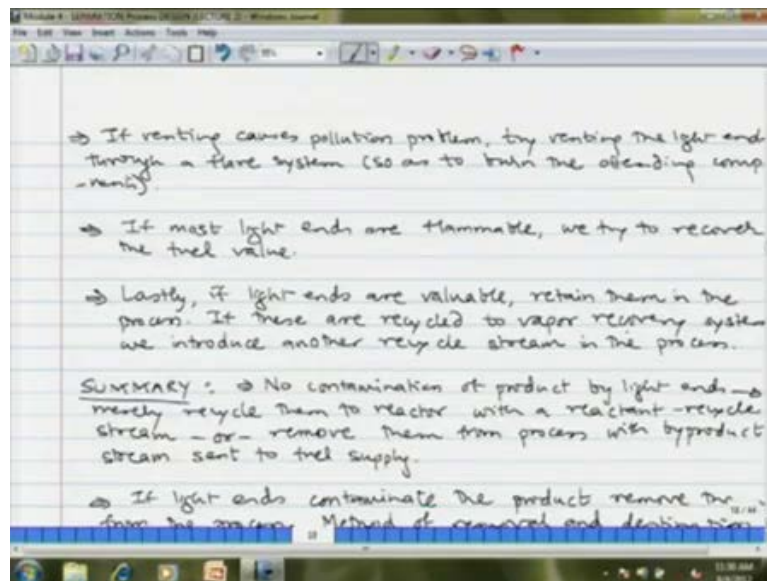 Module 4 - SEPARATION Process DESIGN (LECTURE 2) - Windows Journal
File Edit View Insert Actions Tools Help
⇒ If venting causes pollution problem, try venting the light end
through a flare system (so as to burn the offending comp
-nents).
⇒ If most light ends are flammable, we try to recover
the fuel value.
⇒ Lastly, if light ends are valuable, retain them in the
process. If these are recycled to vapor recovery system
we introduce another recycle stream in the process.
SUMMARY : ⇒ No contamination of product by light ends →
merely recycle them to reactor with a reactant-recycle
stream -or- remove them from process with byproduct
stream sent to fuel supply.
⇒ If light ends contaminate the product remove the
from the process. Method of removal and destination
11:30 AM